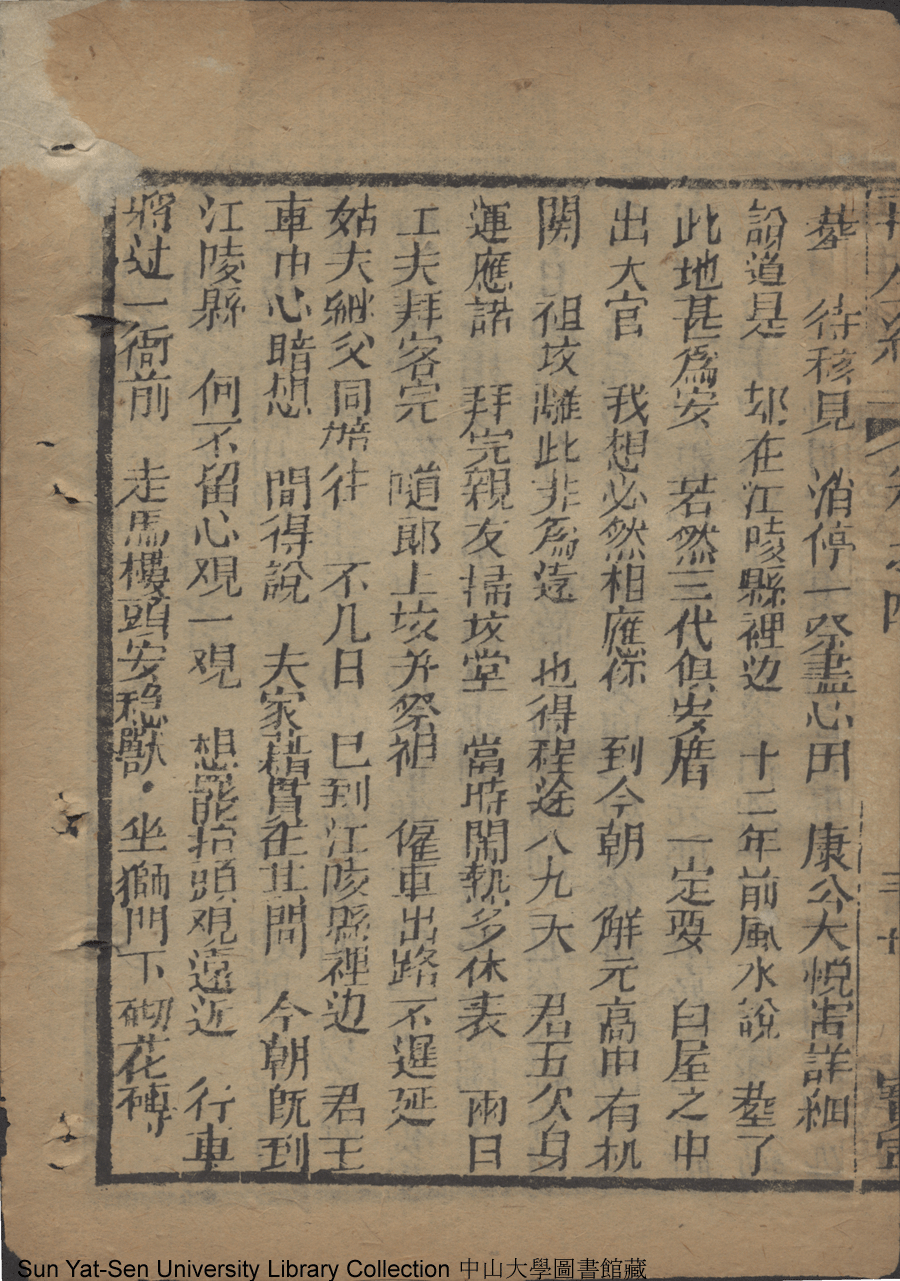 塟 待移見 消停一祭盡心田 康公大悅害詳細
說道是 却在江陵縣裡边 十二年前風水說 塟了
此地甚爲安 若然三代俱安厝 一定要 白屋之中
出大官 我想必然相應你 到今朝 觧元高中有机
関 祖坟離此非爲遠 也得程途八九天 君五欠身
運應諾 拜完親友掃坟堂 當時閙熱多休表 兩日
工夫拜客完 隨郎上坟并祭祖 僱車出路不遲延
姑夫継父同陪往 不几日 已到江陵縣裡边 君王
車中心暗想 間得說 夫家藉貫在其間 今朝旣到
江陵縣 何不留心观一观 想罷抬頭观遠近 行車
將过一衙前 走馬樓頭安穏獸·坐獅門下砌花磚
三十
Sun Yat-Sen University Library Collection 中山大學圖書館藏